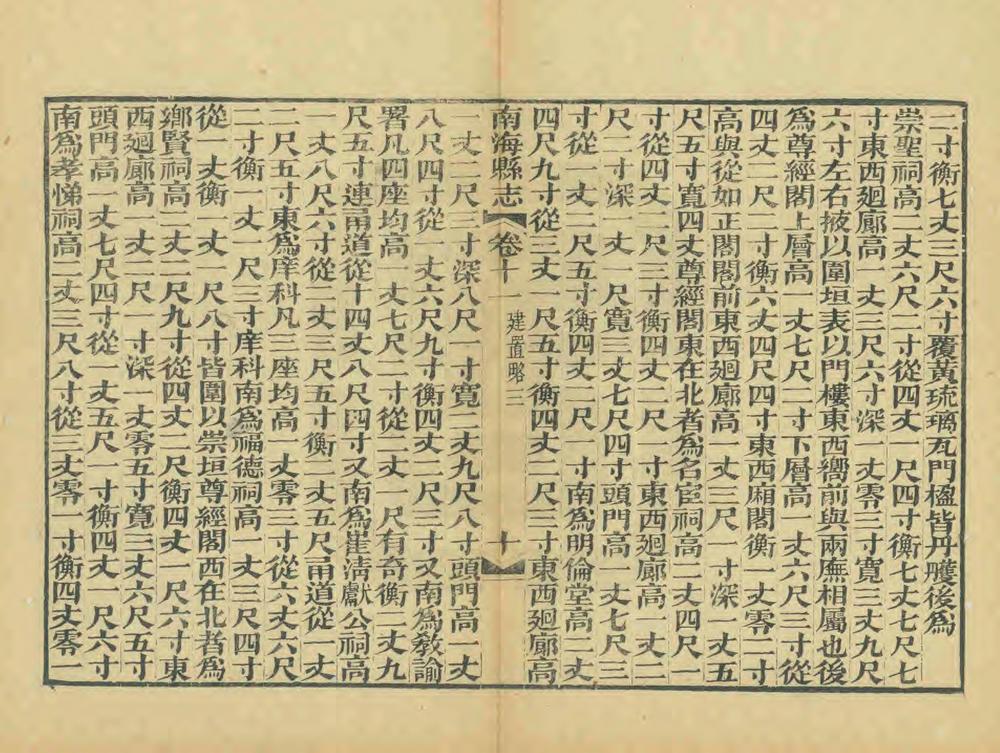 二寸衡七丈三尺六寸覆黃琉璃瓦門楹皆丹雘後爲
崇聖祠高二丈六尺二寸從四丈一尺四寸衡七丈七尺七
寸東西廻廊高一丈三尺六寸深一丈零三寸寬三丈九尺
六寸左右掖以圍垣表以門樓東西嚮前與兩廡相屬也後
爲尊經閣上層高一丈七尺一寸下層高一丈六尺三寸從
四丈一尺二寸衡六丈四尺四寸東西廂閣衡一丈零二寸
高與從如正閣閣前東西廻廊高一丈三尺一寸深一丈五
尺五寸寬四丈尊經閣東在北者爲名宦祠高二丈四尺一
寸從四丈二尺三寸衡四丈二尺一寸東西廻廊高一丈二
尺二寸深一丈一尺寬三丈七尺四寸頭門高一丈七尺三
寸從一丈二尺五寸衡四丈二尺一寸南爲明倫堂高二丈
四尺九寸從三丈一尺五寸衡四丈二尺三寸東西廻廊高
南海縣志 卷十一 建置略三 十
一丈二尺三寸深八尺一寸寬二丈九尺八寸頭門高一丈
八尺四寸從一丈六尺九寸衡四丈二尺三寸又南爲敎諭
署凡四座均高一丈七尺二寸從二丈一尺有奇衡二丈九
尺五寸連甬道從十四丈八尺四寸又南爲崔淸獻公祠高
一丈八尺六寸從一丈三尺五寸衡二丈五尺甬道從一丈
二尺五寸東爲庠科凡三座均高一丈零三寸從六丈六尺
二寸衡一丈一尺三寸庠科南爲福德祠高一丈三尺四寸
從一丈衡一丈一尺八寸皆圍以崇垣尊經閣西在北者爲
鄉賢祠高二丈二尺九寸從四丈二尺衡四丈一尺六寸東
西廻廊高一丈二尺一寸深一丈零五寸寬三丈六尺五寸
頭門高一丈七尺四寸從一丈五尺一寸衡四丈一尺六寸
南爲孝悌祠高二丈三尺八寸從三丈零一寸衡四丈零一